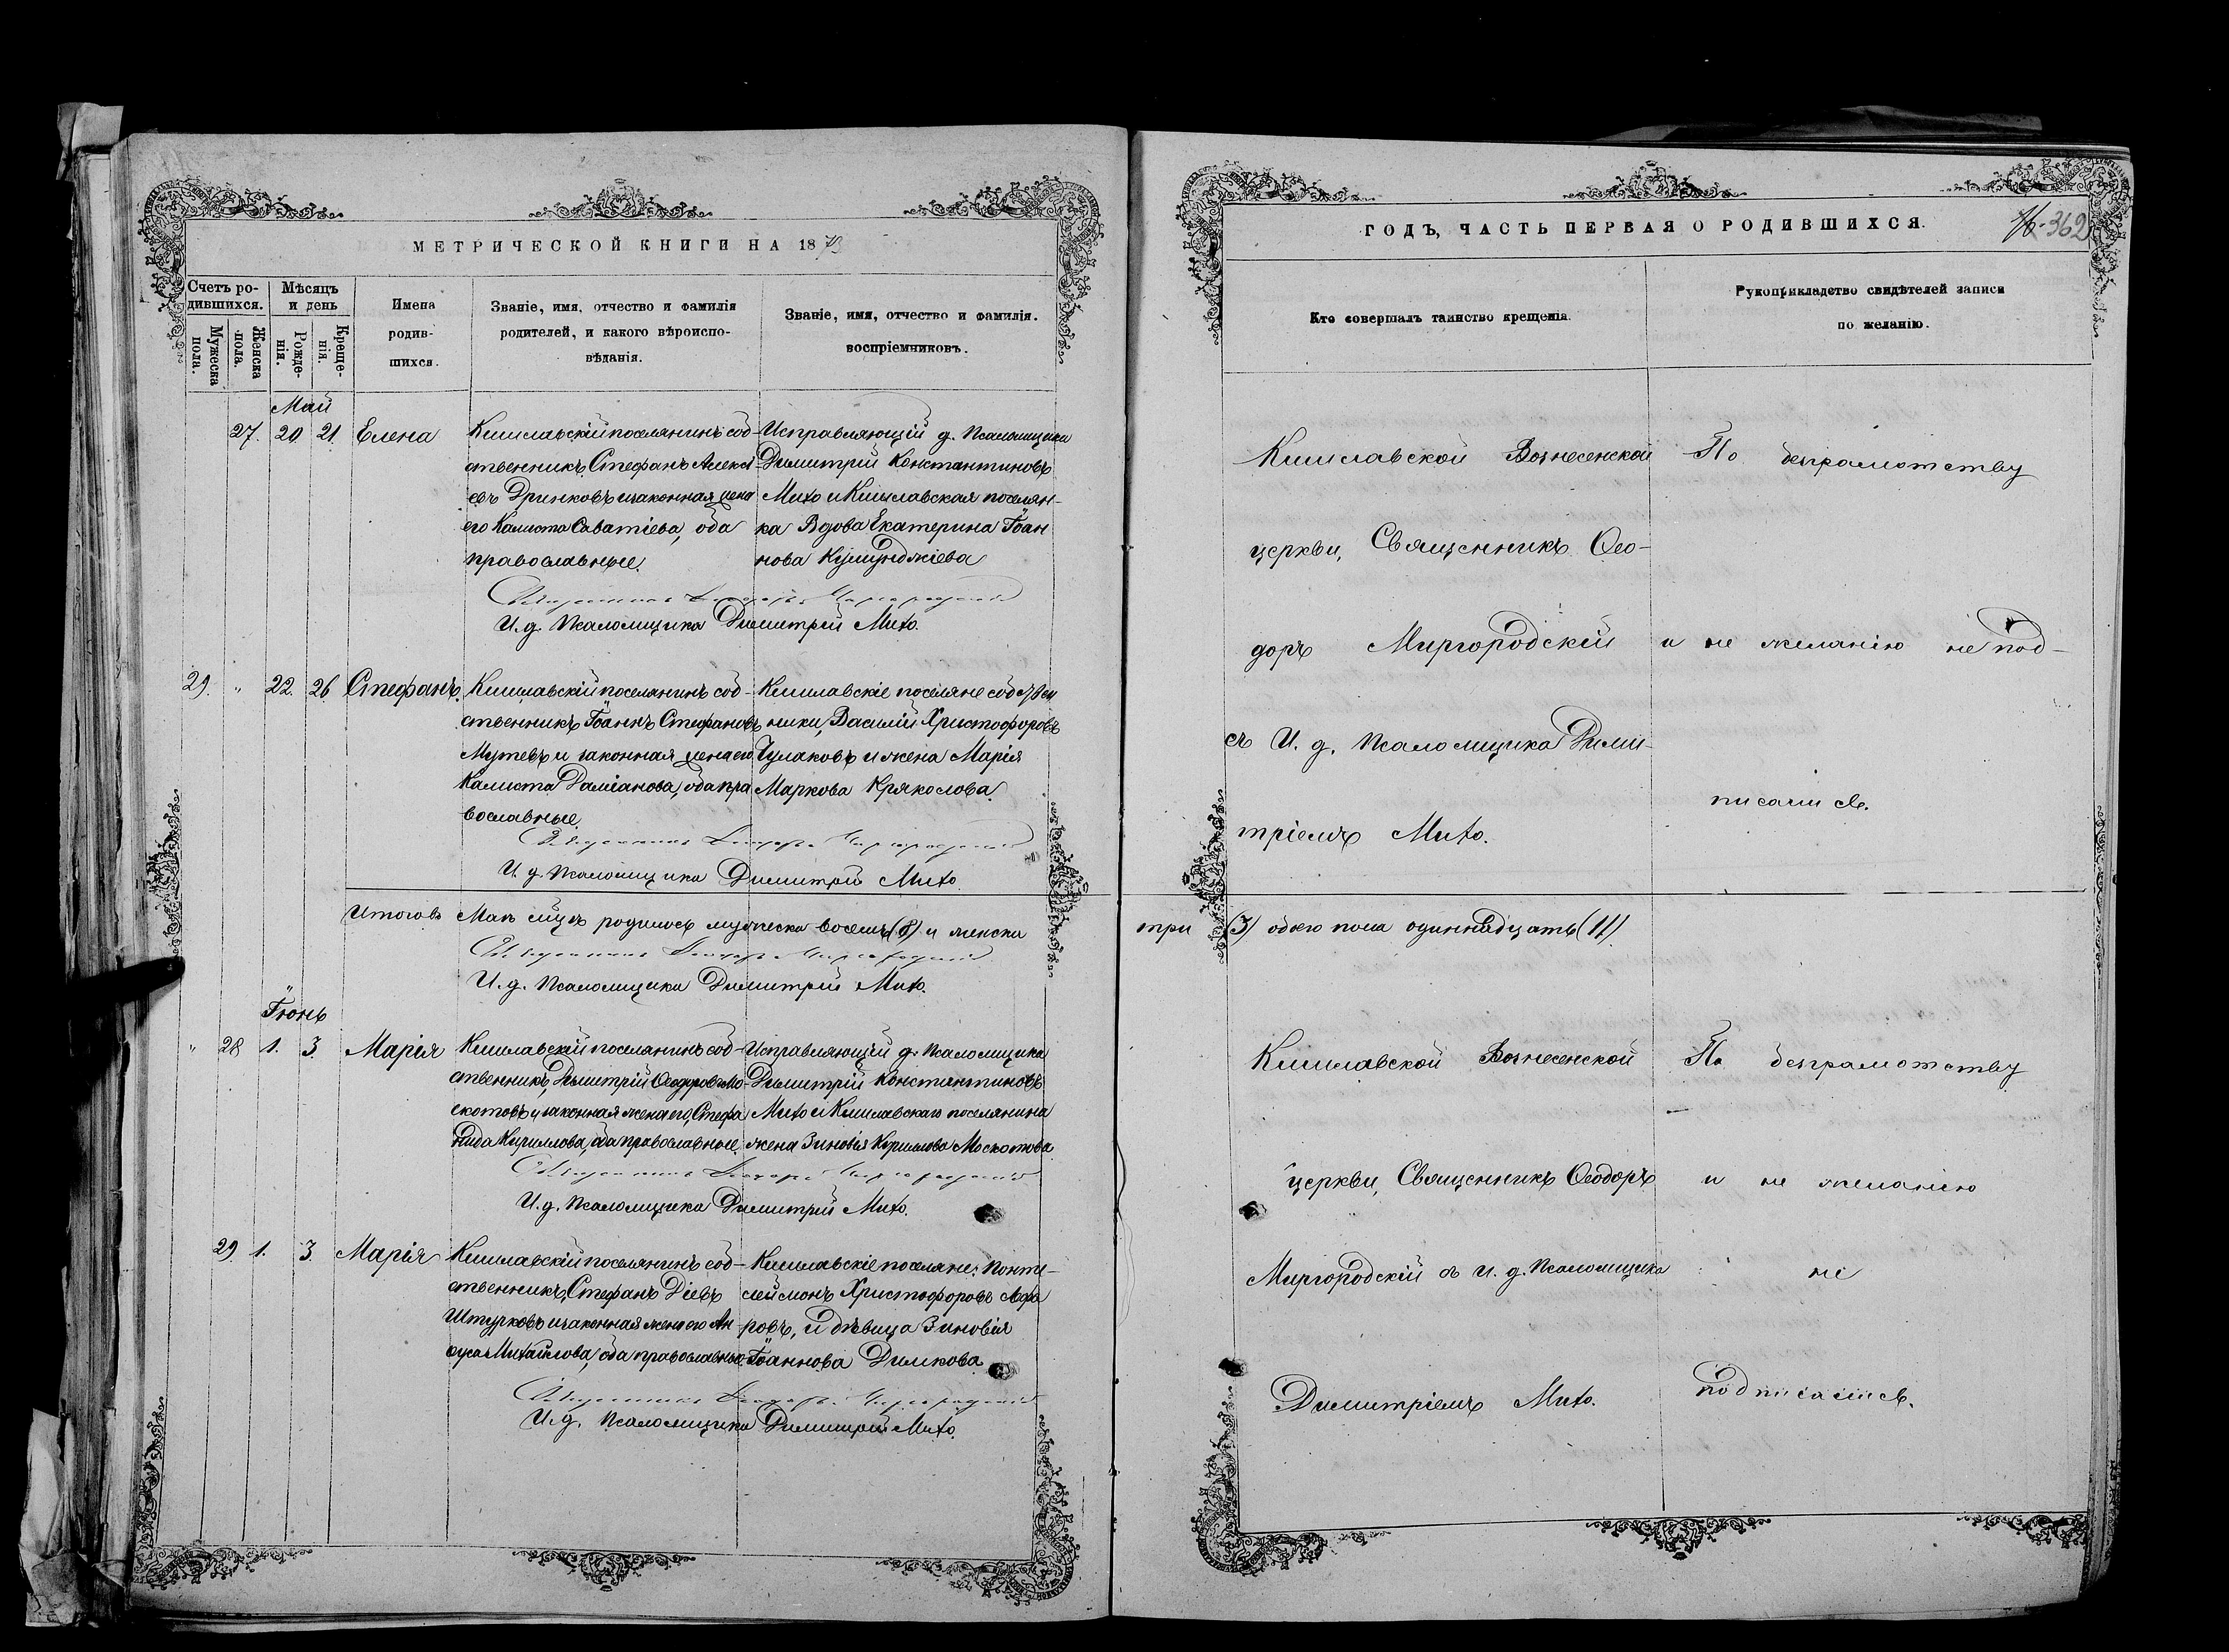 МЕТРИЧЕСКОЙ КНИГИ НА 1873
Счетъ ро-
дившихся.
Мужеска
пола.
Женска
пола.
Мѣсяцъ
и день
Рожде-
нія.
Креще-
нія.
Имена
родив-
шихся.
Званіе, имя, отчество и фамилія
родителей, и какого вѣроиспо-
вѣданія.
Званіе, имя, отчество и фамилія.
воспріемниковъ.
Май
27. 20. 21. Елена
Кишлавскій поселянинъ соб-
ственникъ, Стефанъ Алексі-
евъ Дринковъ и законная жена
его Калиста Саватіева, оба
православные.
Исправляющій д. Псаломщика
Димитрій Константиновъ
Михо и Кишлавская поселян-
ка Вдова Екатерина Іоан
нова Куюмджіева
Священникъ Ѳеодоръ Миргородскій
И. д. Псаломщика Димитрій Михо.
29. " 22. 26. Стефанъ.
Кишлавскій поселянинъ соб-
ственникъ Іоаннъ Стефановъ
Мутевъ и законная жена его
Калиста Даміанова, оба пра
вославные.
Кишлавскіе поселяне собствен
ники, Василій Христофоровъ
Чулаковъ и жена Марія
Маркова Крякослова.
Священникъ Ѳеодоръ Миргородскій
И. д. Псаломщика Димитрій Михо
Итого въ Маѣ мцѣ родилось мужеска восемь (8) и женска
Священникъ Ѳеодоръ Миргородскій
И. д. Псаломщика Димитрій Михо.
Іюнь
" 28 1. 3. Марія
Кишлавскій поселянинъ соб-
ственникъ, Димитрій Ѳеодоровъ Мо-
скотовъ и законная жена его, Стефа
нида Кириллова, оба православные.
Исправляющій д. Псаломщика
Димитрій Константиновъ
Михо и Кишлавскаго поселянина
жена Зиновія Кириллова Москотова
Священникъ Ѳеодоръ Миргородскій
И. д. Псаломщика Димитрій Михо.
29. 1. 3. Марія
Кишлавскій поселянинъ соб-
ственникъ, Стефанъ Діевъ
Штурковъ и законная жена его Ан
Михайлова, оба православные.
Кишлавскіе поселяне: Панте-
леймонъ Христофоровъ
ровъ, и дѣвица Зиновія
Іоаннова Димкова
Священникъ Ѳеодоръ Миргородскій
И. д. Псаломщика Димитрій Михо.
ГОДЪ, ЧАСТЬ ПЕРВАЯ О РОДИВШИХСЯ.
362
Кто совершалъ таинство крещенія.
Рукоприкладство свидѣтелей записи
по желанію.
Кишлавской Вознесенской
церкви, Священникъ Ѳео-
доръ Миргородскій
съ И. д. Псаломщика Дими-
тріемъ Михо.
По безграмотству
и не желанію не под-
писались.
три (3) обоего пола одиннадцать (11)
Кишлавской Вознесенской
церкви, Священникъ Ѳеодоръ
Миргородскій съ И. д. Псаломщика
Димитріемъ Михо.
По безграмотству
и не желанію
не
подписались.